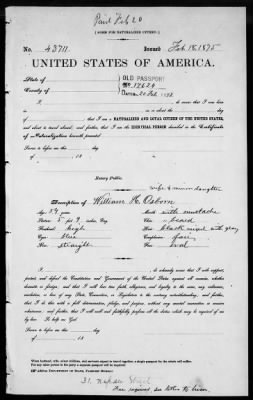 Paid Feb 20
[FORM FOR NATURALIZED CITIZEN.]
No. 43711. Issued Feb 18, 1875
UNITED STATES OF AMERICA.
State of
County of
OLD PASSPORT
No. 17624
I, do swear that I was born
in on or about the day
of that I am a NATURALIZED AND LOYAL CITIZEN OF THE UNITED STATES,
and about to travel abroad; and further, that I am the IDENTICAL PERSON described in the Certificate
of Naturalization herewith presented.
Sworn to before me this day
of , 18
Notary Public.
wife & minor daughter
Description of William H. Osborn
Age: 54 years Mouth: with mustache
Stature: 5 feet 9 inches, Eng. Chin: beard
Forehead: high Hair: black mixed with gray
Eyes: blue Complexion: fair
Nose: straight Face: oval
I, do solemnly swear that I will support,
protect, and defend the Constitution and Government of the United States against all enemies, whether
domestic or foreign; and that I will bear true faith, allegiance, and loyalty to the same, any ordinance,
resolution, or law of any State, Convention, or Legislature to the contrary notwithstanding; and further,
that I do this with a full determination, pledge, and purpose, without any mental reservation or evasion
whatsoever; and further, that I will well and faithfully perform all the duties which may be required of me
by law. So help me God.
Sworn to before me this day
of , 18
When husband, wife, minor children, and servants expect to travel together, a single passport for the whole will suffice.
For any other person in the party a separate passport will be required.